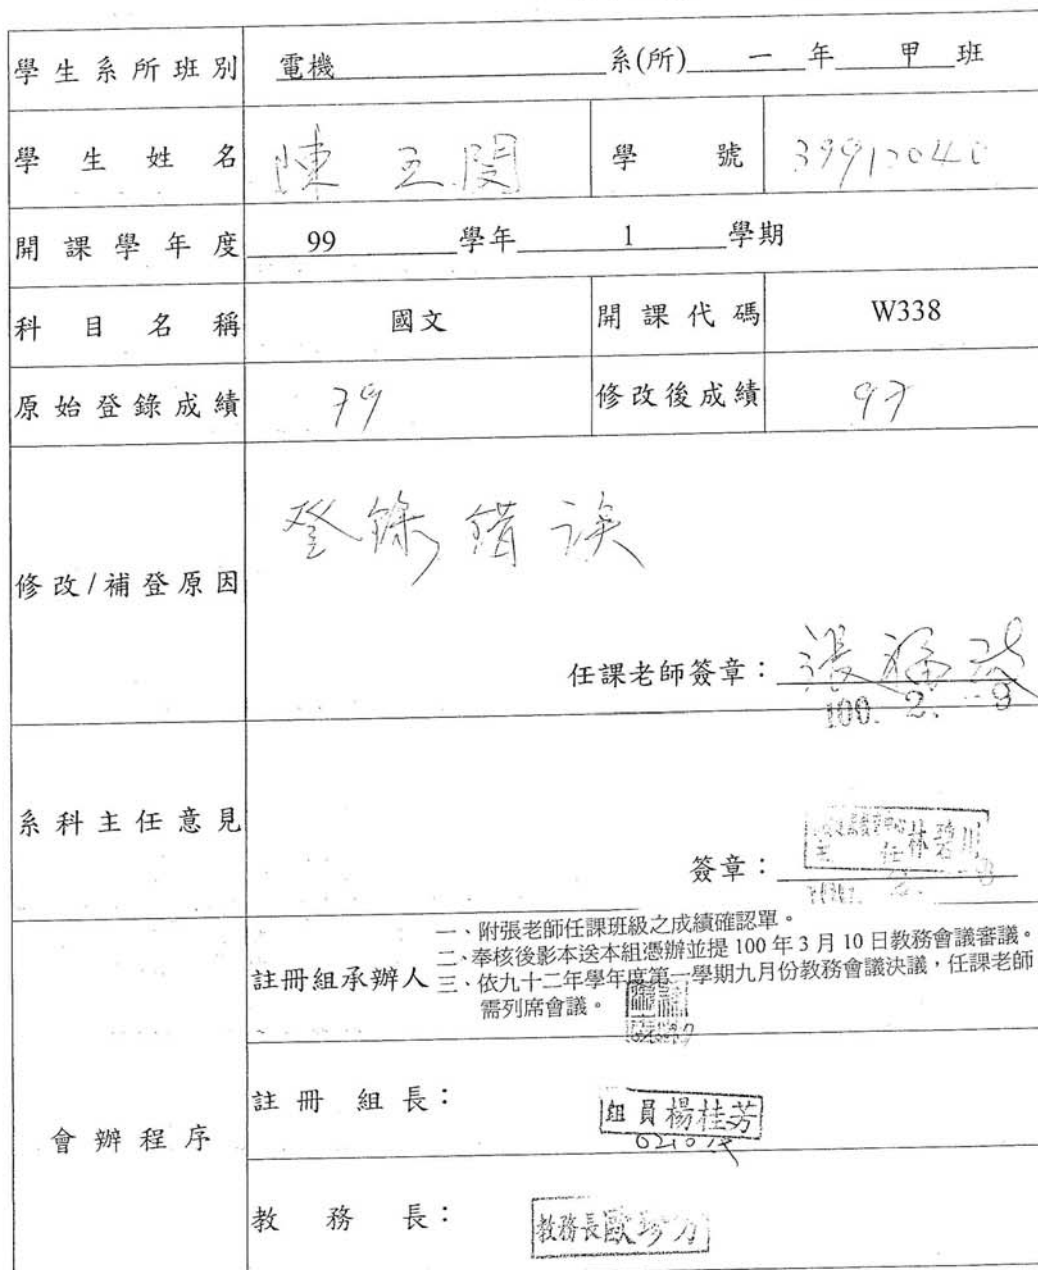 學生系所班別 電機 系(所) 一 年 甲 班
學生姓名 陳 閔 學號 39912040
開課學年度 99 學年 1 學期
科目名稱 國文 開課代碼 W338
原始登錄成績 79 修改後成績 97
修改/補登原因 登錄錯誤
任課老師簽章： 張
100. 2. -9
系科主任意見
簽章： 主 任 林碧川
會辦程序
註冊組承辦人
一、附張老師任課班級之成績確認單。
二、奉核後影本送本組憑辦並提 100 年 3 月 10 日教務會議審議。
三、依九十二年學年度第一學期九月份教務會議決議，任課老師
需列席會議。
註冊組長： 組員楊桂芳
教務長： 教務長歐